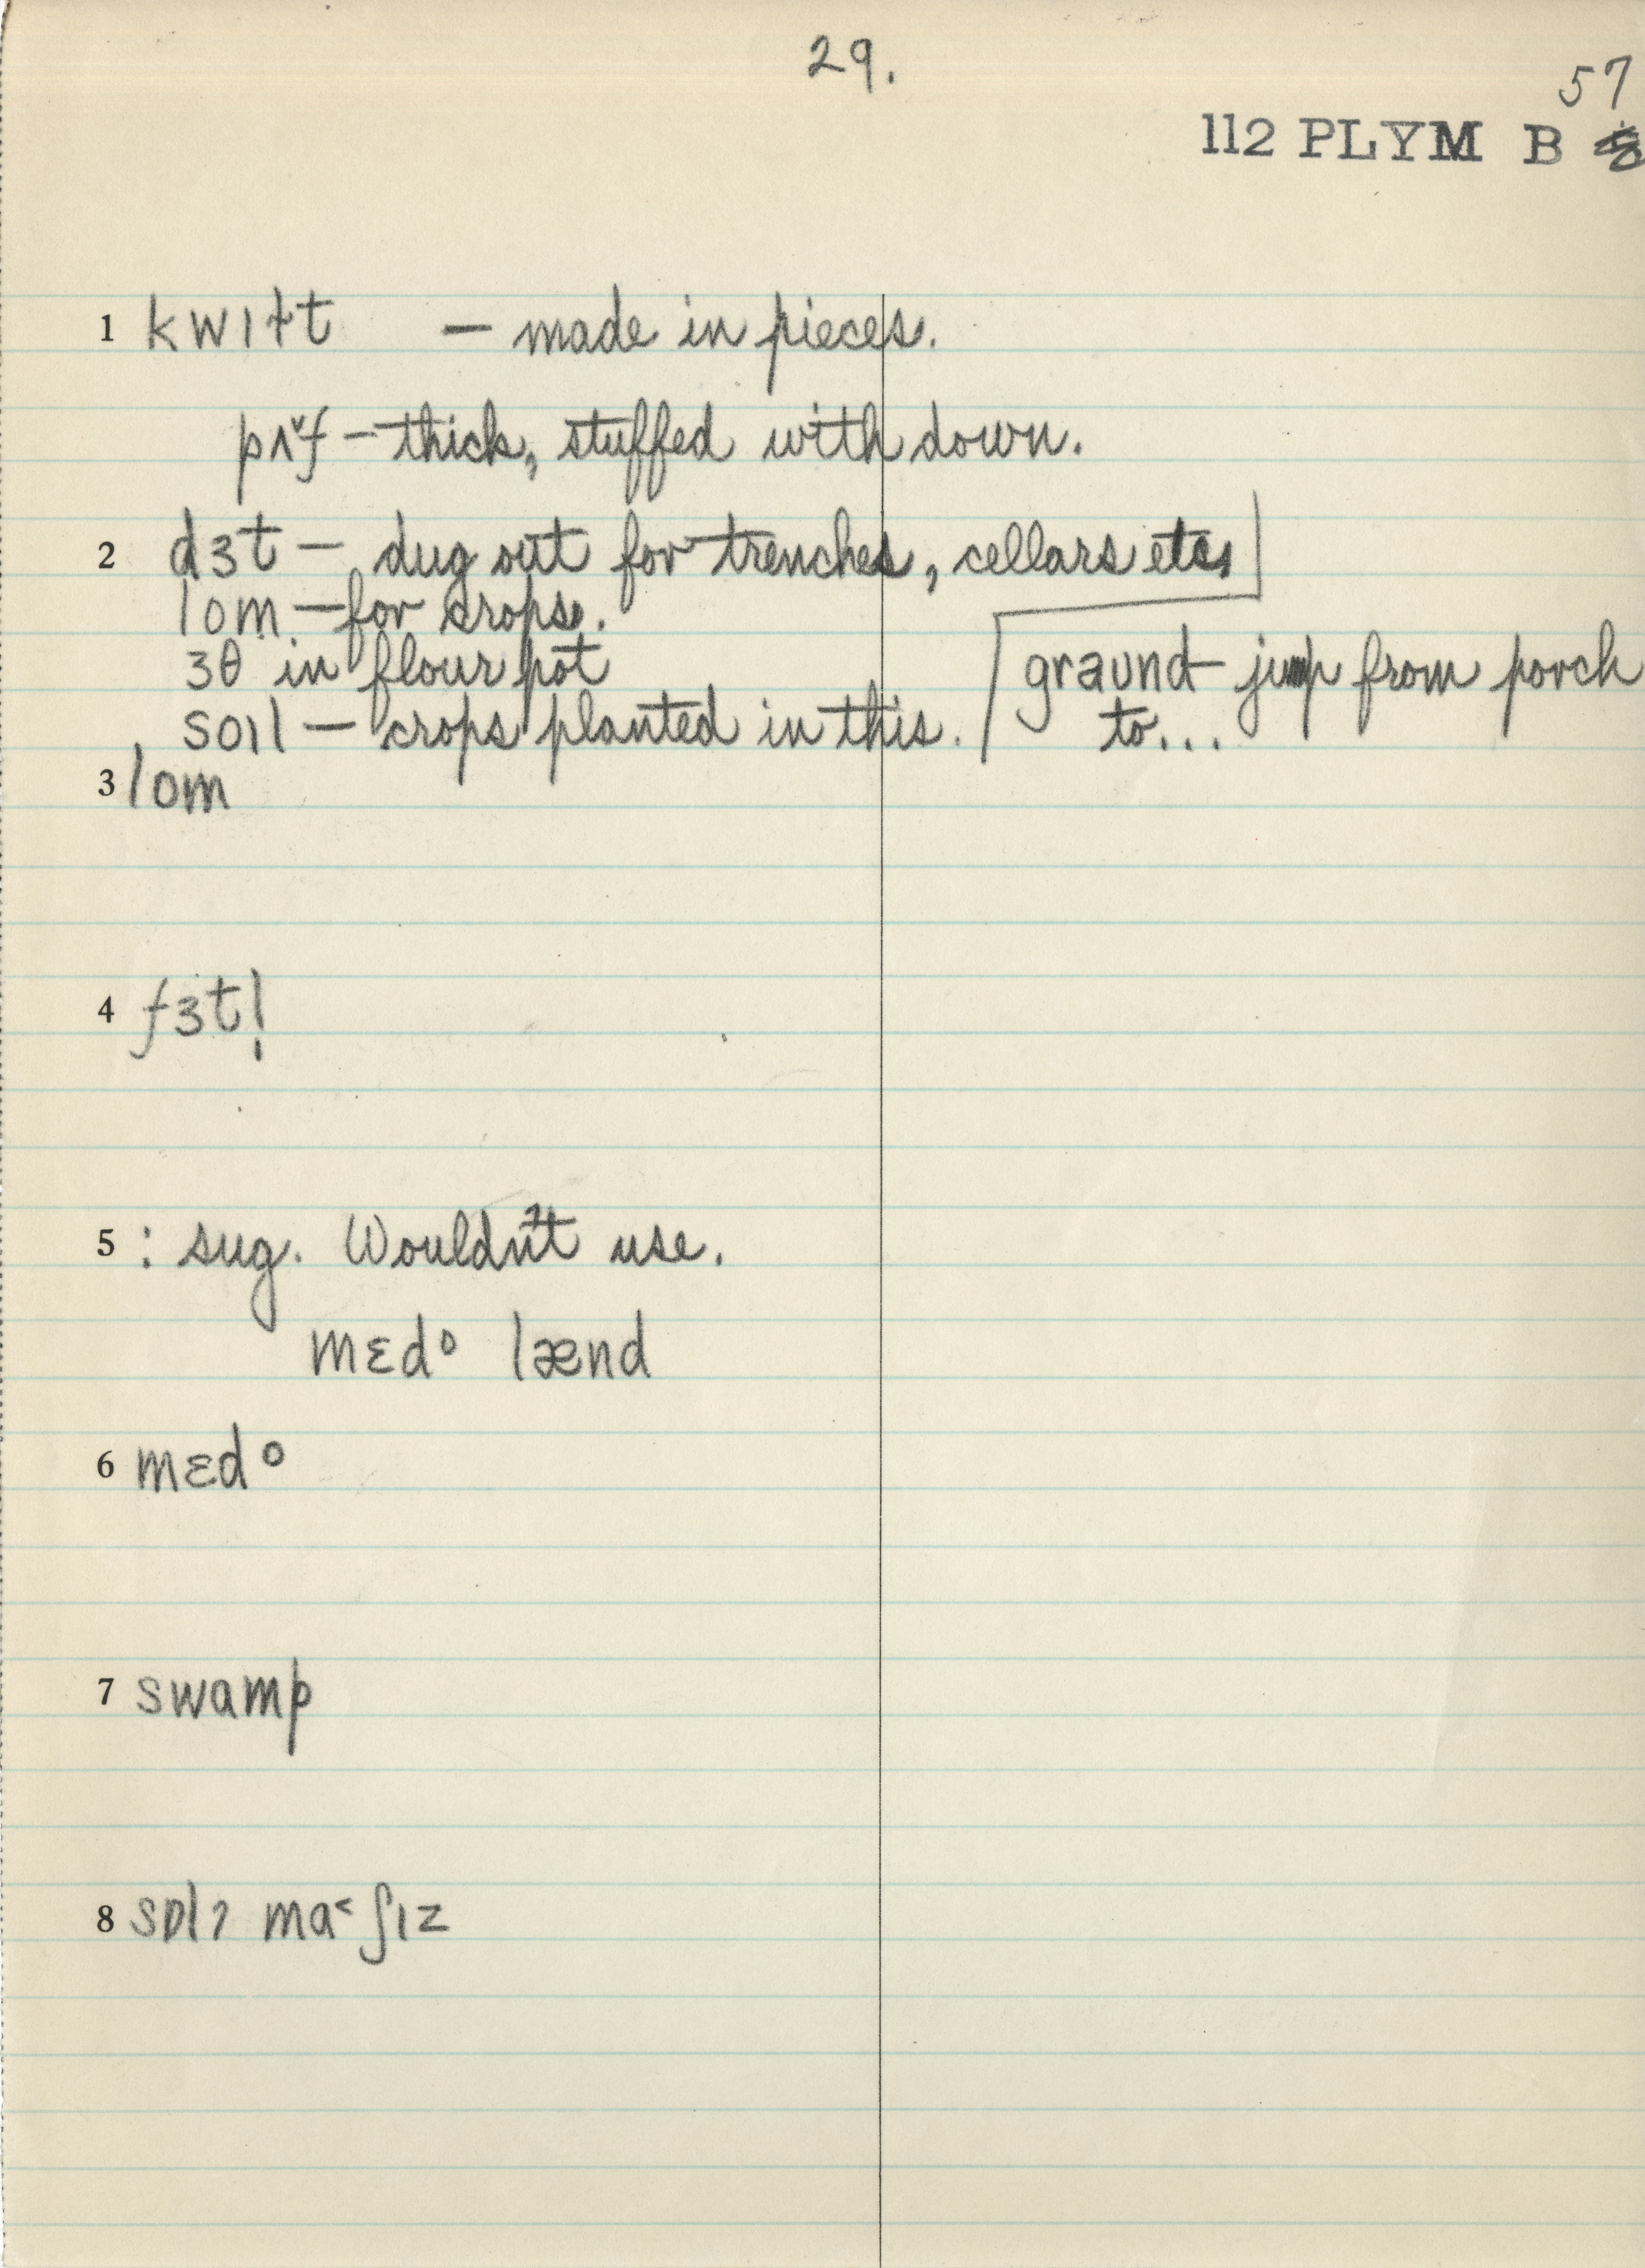 29.
57
112 PLYM B
1 kwɪɫt — made in pieces.
pʌ˅f — thick, stuffed with down.
2 dɜt — dug out for trenches, cellars etc.
lom — for crops.
ɜθ in flour pot
graʊnd — jump from porch
soɪl — crops planted in this.
to...
3 lom
4 fɜtl̩
5 : sug. Wouldn't use.
mɛdᵒ lænd
6 mɛdᵒ
7 swamp
8 sɒlɂ ma˂ʃɪz